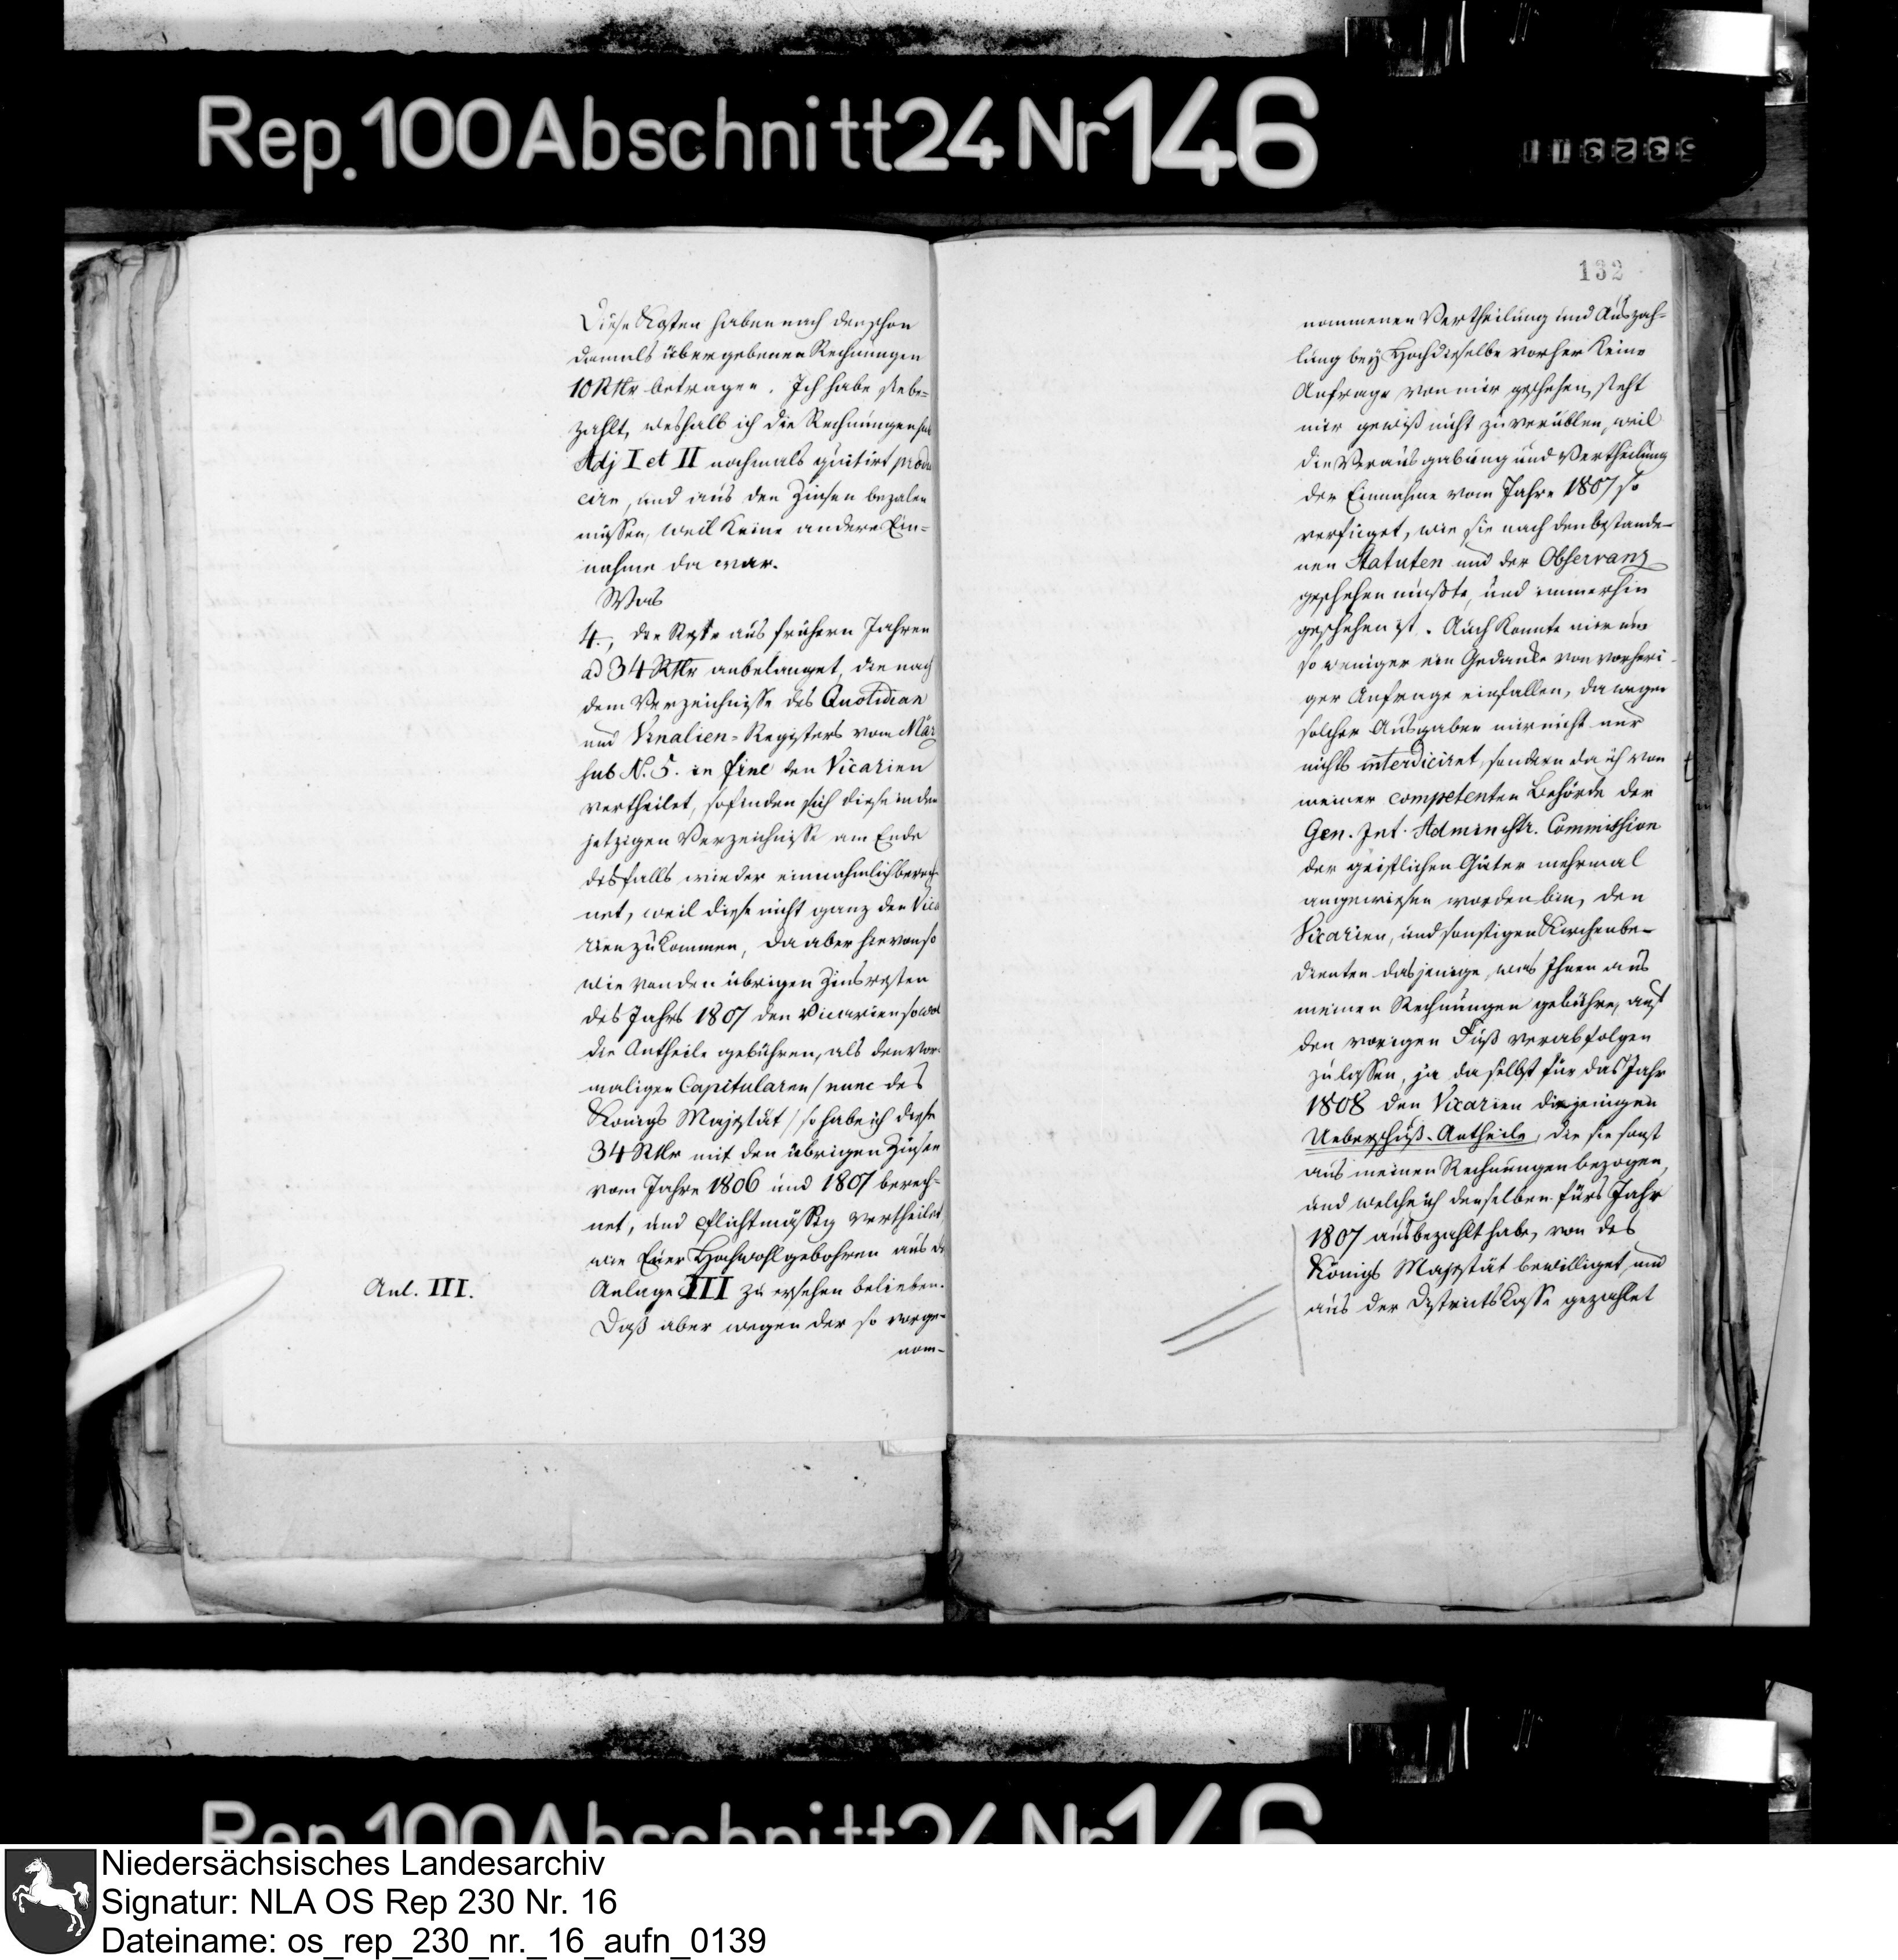 Rep. 100 Abschnitt 24 Nr 146
Diese Kosten haben nach den schon
damals übergebenen Rechnungen
10 Rthr betragen. Ich habe sie be=
zahlt, weshalb ich die Rechnungen sub
Adj I et II nochmals quitirt produ
cire, und aus den Zinsen bezalen
müssen, weil keine andere Ein=
nahme da war.
Was
4., die Reste aus frühern Jahren
ad 34 Rthr anbelanget, die nach
dem Verzeichnisse des Quotidian
und Vinalien=Registers vom März
sub N. 5. in fine den Vicarien
vertheilet, so finden sich diese in dem
jetzigen Verzeichnisse am Ende
desfalls wieder einnahmlich berech
net, weil diese nicht ganz den Vica
rien zukommen, da aber hievon so
wie von den übrigen Zinsresten
des Jahrs 1807 den Vicarien sowol
die Antheile gebühren, als den vor
maligen Capitularen /nunc des
Königs Majestät/ so habe ich diese
34 Rthr mit den übrigen Zinsen
vom Jahre 1806 und 1807 berech=
net, und pflichtmäßig vertheilet,
wie Euer Hochwohlgebohren aus de
Anl. III.
Anlage III zu ersehen belieben.
Daß aber wegen der so vorge=
nom=
132
nommenen Vertheilung und Auszah=
lung bey Hochdieselbe vorher keine
Anfrage von mir geschehen, steht
mir gewiß nicht zu verüblen, weil
die Verausgabung und Vertheilung
der Einnahme vom Jahre 1807 so
verfüget, wie sie nach den bestande=
nen Statuten und der Observanz
geschehen mußte, und immerhin
geschehen ist. Auch konnte mir um
so weniger ein Gedanke von vorheri=
ger Anfrage einfallen, da wegen
solcher Ausgaben mir nicht nur
nichts interdiciret, sondern da ich von
meiner competenten Behörde der
Gen. Int. Adminstr. Commission
der geistlichen Güter mehrmal
angewiesen worden bin, den
Vicarien, und sonstigen Kirchenbe=
dienten dasjenige, was Ihnen aus
meinen Rechnungen gebühre, auf
den vorigen Fuß verabfolgen
zu lassen, ja da selbst für das Jahr
1808 den Vicarien diejenigen
Ueberschuß-Antheile, die sie sonst
aus meinen Rechnungen bezogen,
und welche ich denselben fürs Jahr
1807 ausbezahlt habe, von des
Königs Majestät bewilliget, und
aus der Districtskasse gezahlet
Rep. 100 Abschnitt 24 Nr 146
Niedersächsisches Landesarchiv
Signatur: NLA OS Rep 230 Nr. 16
Dateiname: os_rep_230_nr._16_aufn_0139